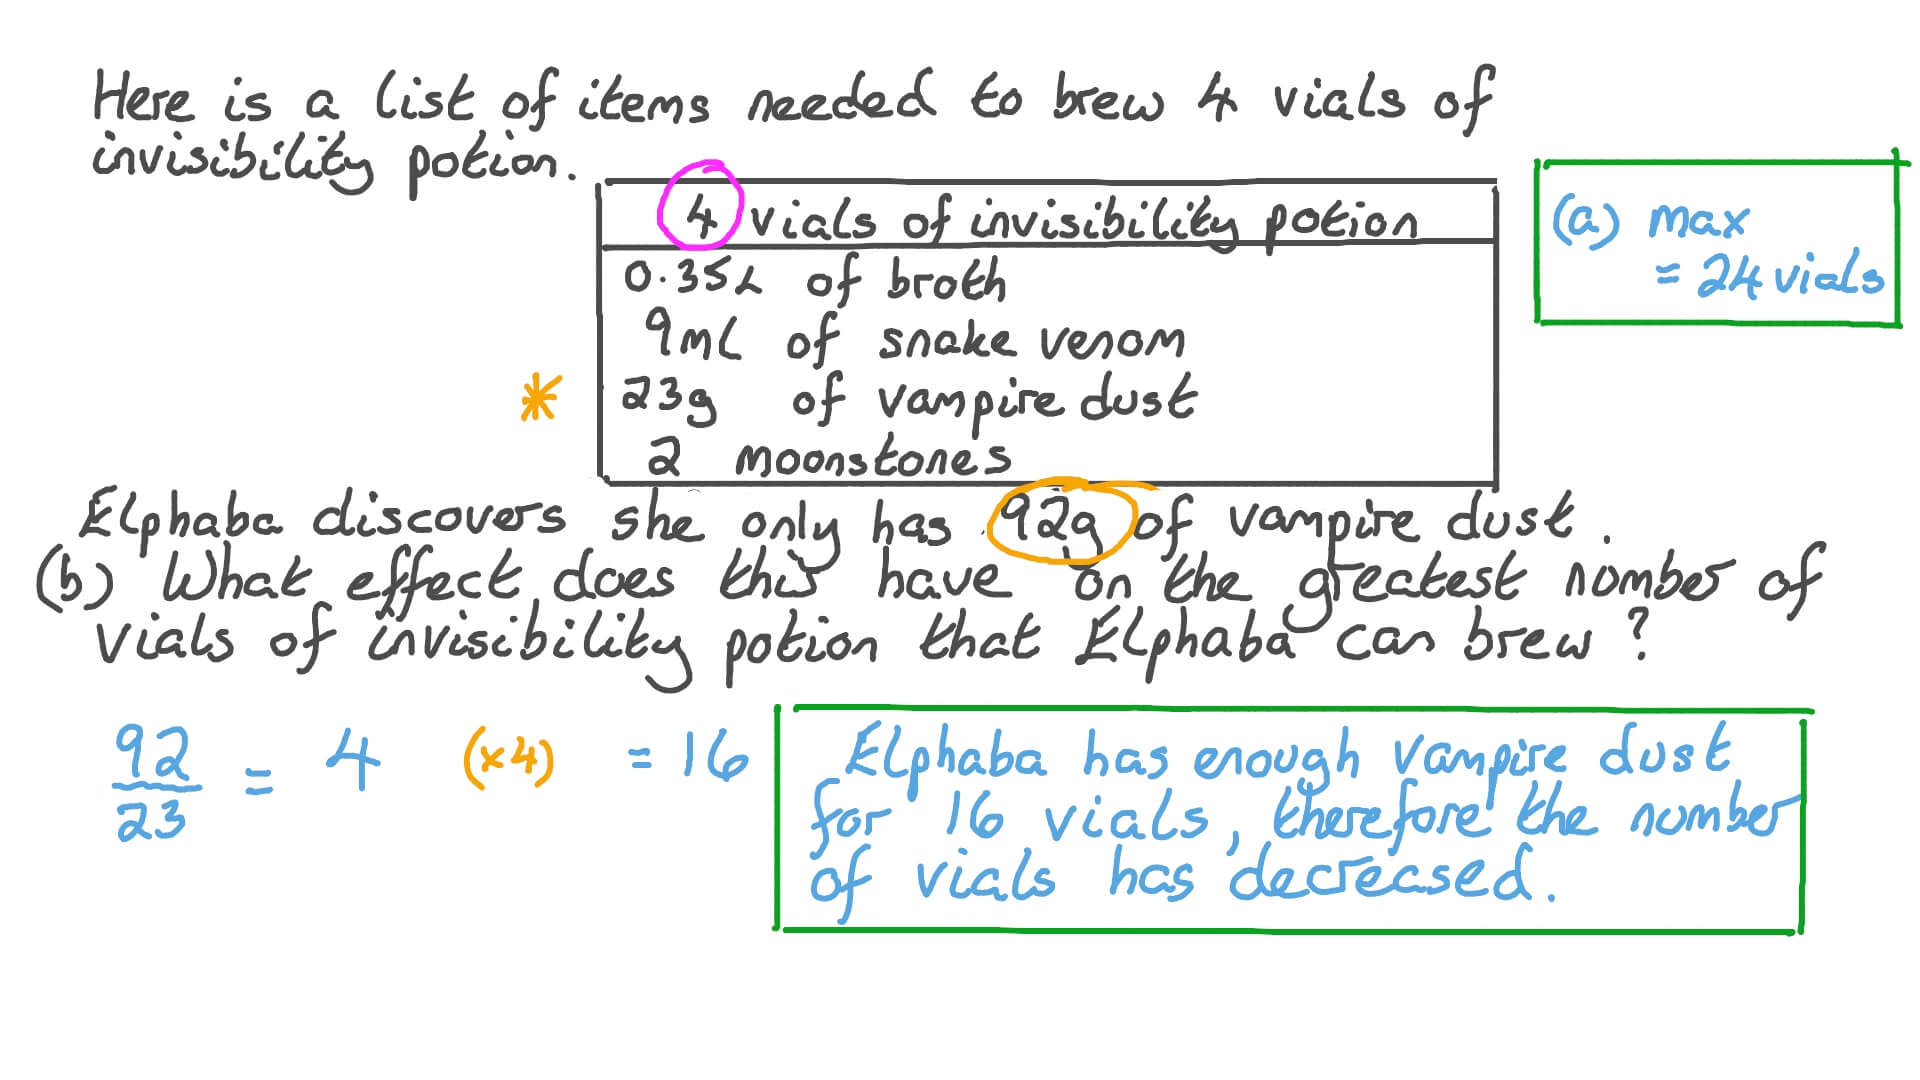 Here is a list of items needed to brew 4 vials of
invisibility potion.
4 vials of invisibility potion
0.35L of broth
9mL of snake venom
* 23g of vampire dust
2 moonstones
(a) max
= 24 vials
Elphaba discovers she only has 92g of vampire dust.
(b) What effect does this have on the greatest number of
vials of invisibility potion that Elphaba can brew?
92/23 = 4 (×4) = 16
Elphaba has enough vampire dust
for 16 vials, therefore the number
of vials has decreased.